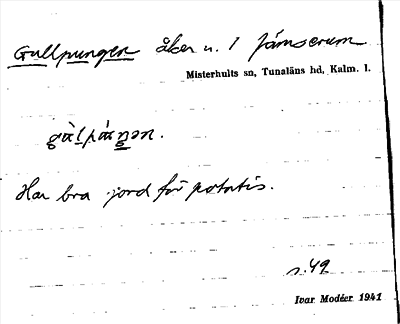 Gullpungen åker u. 1 Jämserum
Misterhults sn, Tunaläns hd, Kalm. l.
Har bra jord för potatis.
s. 49
Ivar Modéer 1941